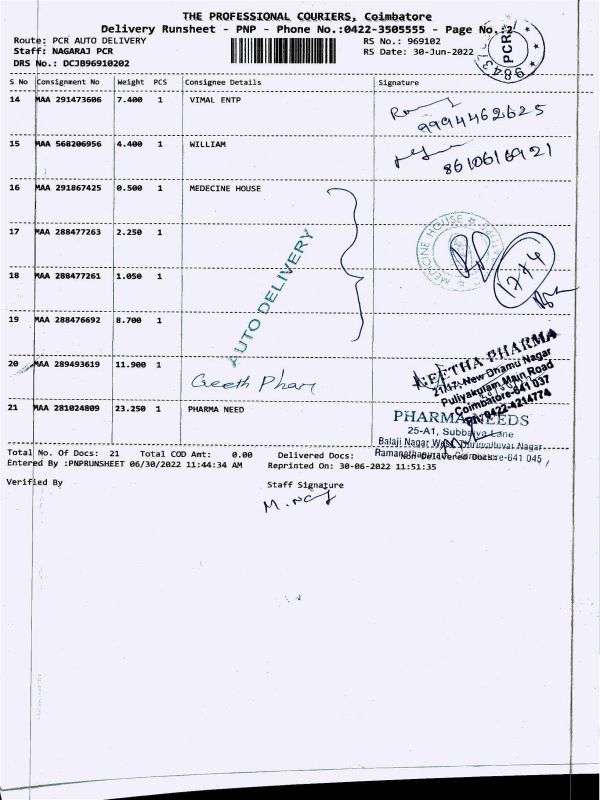 THE PROFESSIONAL COURIERS, Coimbatore
Delivery Runsheet - PNP - Phone No.:0422-3505555 - Page No.:2
Route: PCR AUTO DELIVERY RS No.: 969102
Staff: NAGARAJ PCR RS Date: 30-Jun-2022
DRS No.: DCJB96910202
PCR
S No Consignment No Weight PCS Consignee Details Signature
14 MAA 291473606 7.400 1 VIMAL ENTP
9994462625
15 MAA 568206956 4.400 1 WILLIAM
8610616921
16 MAA 291867425 0.500 1 MEDECINE HOUSE
17 MAA 288477263 2.250 1
MEDICINE HOUSE
18 MAA 288477261 1.050 1
AUTO DELIVERY
19 MAA 288476692 8.700 1
20 MAA 289493619 11.900 1
Geeth Pharm
GEETHA PHARMA
21/47, New Dhamu Nagar
Puliyakulam Main Road
Coimbatore-641 037
PH: 0422-4214774
21 MAA 281024809 23.250 1 PHARMA NEED
PHARMA NEEDS
25-A1, Subbaiya Lane
Balaji Nagar West, Thiruvalluvar Nagar
Ramanathapuram, Coimbatore-641 045
Total No. Of Docs: 21 Total COD Amt: 0.00 Delivered Docs: Non-Delivered Docs:
Entered By :PNPRUNSHEET 06/30/2022 11:44:34 AM Reprinted On: 30-06-2022 11:51:35
Verified By Staff Signature